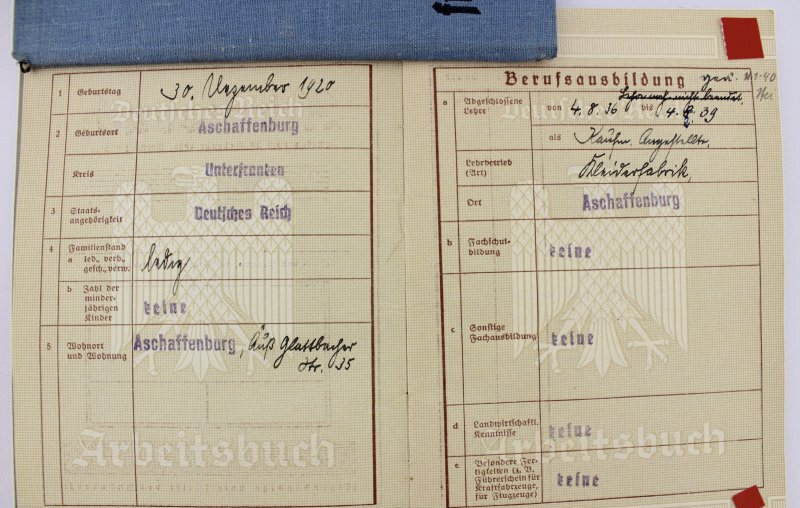 1 Geburtstag 30. Dezember 1920
Deutsches Reich
2 Geburtsort Aschaffenburg
Kreis Unterfranken
3 Staats-
angehörigkeit Deutsches Reich
4 Familienstand
a led., verh.,
gesch., verw. ledig
b Zahl der
minder-
jährigen
Kinder keine
5 Wohnort
und Wohnung Aschaffenburg, Äuß Glattbacher
Str. 35
Arbeitsbuch
Berufsausbildung
Deutsches Reich
a Abgeschlossene
Lehre von 4.8.36 bis 4. 39
Lehre noch nicht beendet,
als Kaufm. Angestellte,
Lehrbetrieb
(Art) Kleiderfabrik,
Ort Aschaffenburg
b Fachschul-
bildung keine
c Sonstige
Fachausbildung keine
d Landwirtschaftl.
Kenntnisse keine
e Besondere Fer-
tigkeiten (z. B.
Führerschein für
Kraftfahrzeuge,
für Flugzeuge) keine
Arbeitsbuch